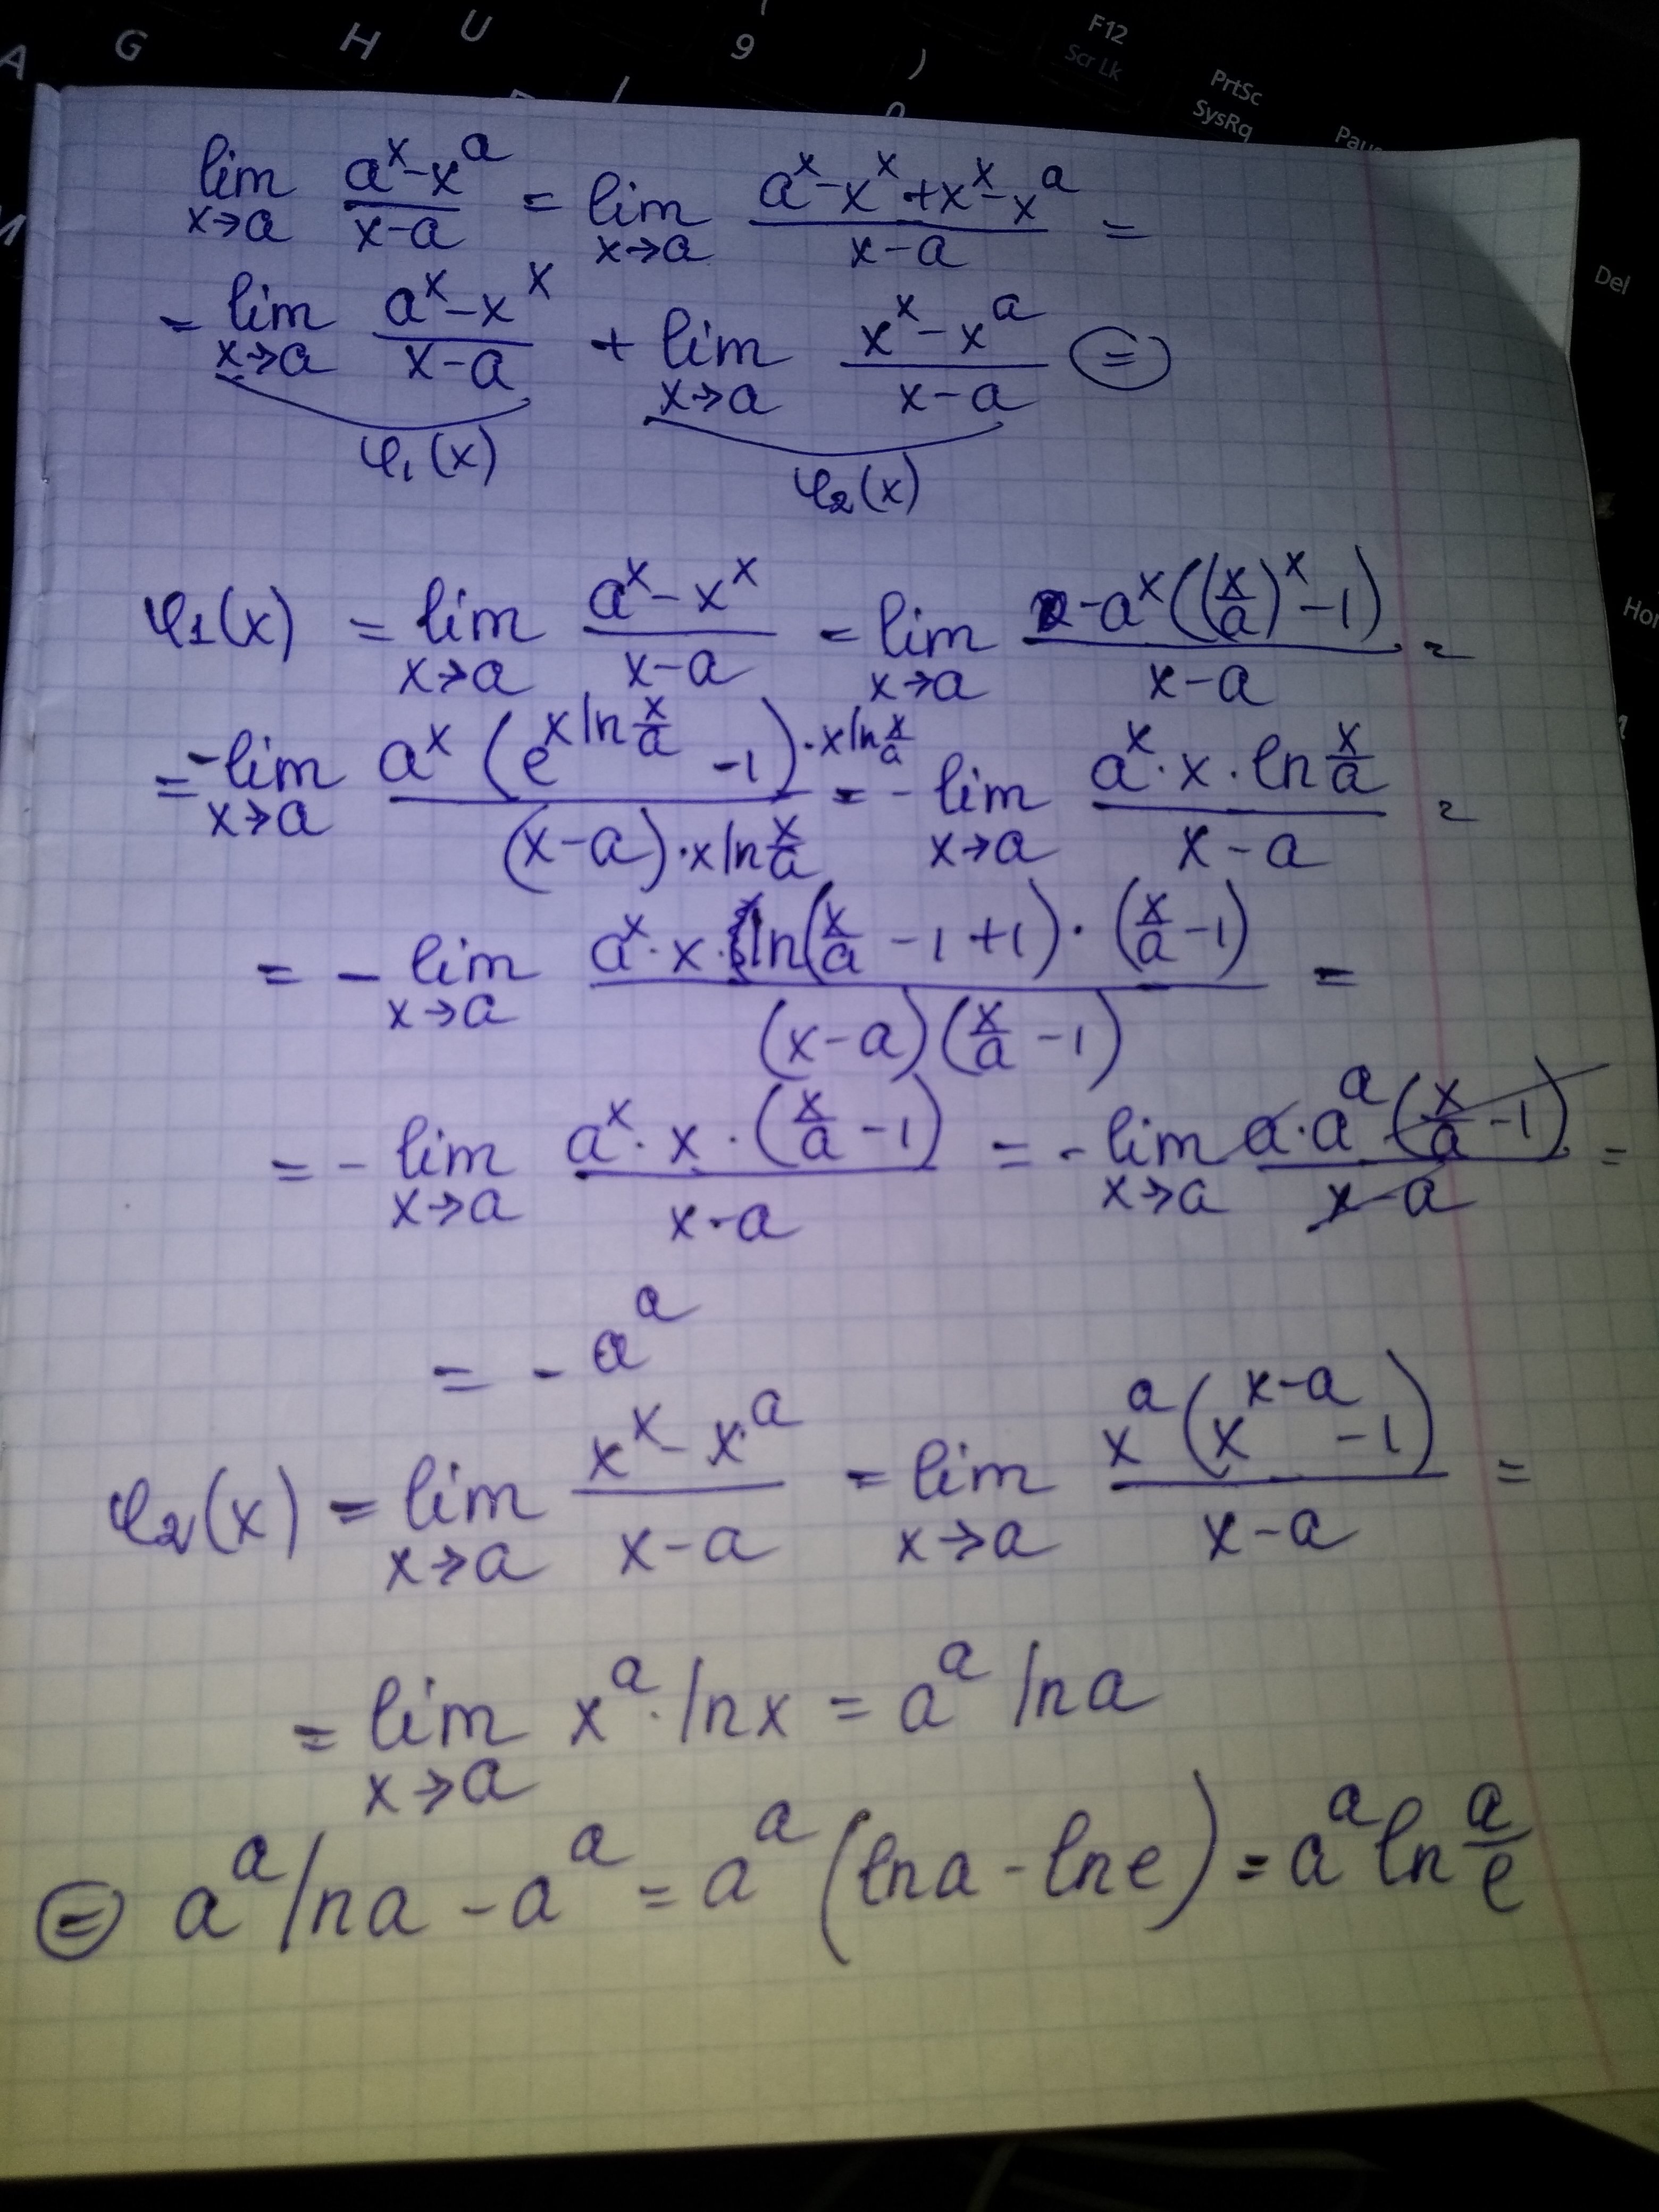 G H U 9 ) F12
A Scr Lk PrtSc
SysRq
Del
lim x→a (a^x - x^a)/(x-a) = lim x→a (a^x - x^x + x^x - x^a)/(x-a) =
= lim x→a (a^x - x^x)/(x-a) + lim x→a (x^x - x^a)/(x-a) (=)
φ₁(x) φ₂(x)
φ₁(x) = lim x→a (a^x - x^x)/(x-a) = lim x→a (-a^x((x/a)^x - 1))/(x-a) =
= -lim x→a (a^x (e^(x ln x/a) - 1) · x ln x/a)/((x-a) · x ln x/a) = - lim x→a (a^x · x · ln x/a)/(x-a) =
= - lim x→a (a^x · x · ln(x/a - 1 + 1) · (x/a - 1))/((x-a)(x/a - 1)) =
= - lim x→a (a^x · x · (x/a - 1))/(x-a) = - lim x→a (a · a^a (x/a - 1))/(x-a) =
= - a^a
φ₂(x) = lim x→a (x^x - x^a)/(x-a) = lim x→a (x^a (x^(x-a) - 1))/(x-a) =
= lim x→a x^a · ln x = a^a ln a
(=) a^a ln a - a^a = a^a (ln a - ln e) = a^a ln a/e